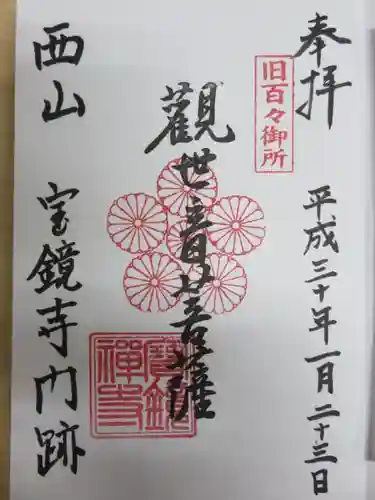 奉拝
平成三十年一月二十三日
旧百々御所
觀世音菩薩
寶鏡禪寺
西山 宝鏡寺门跡